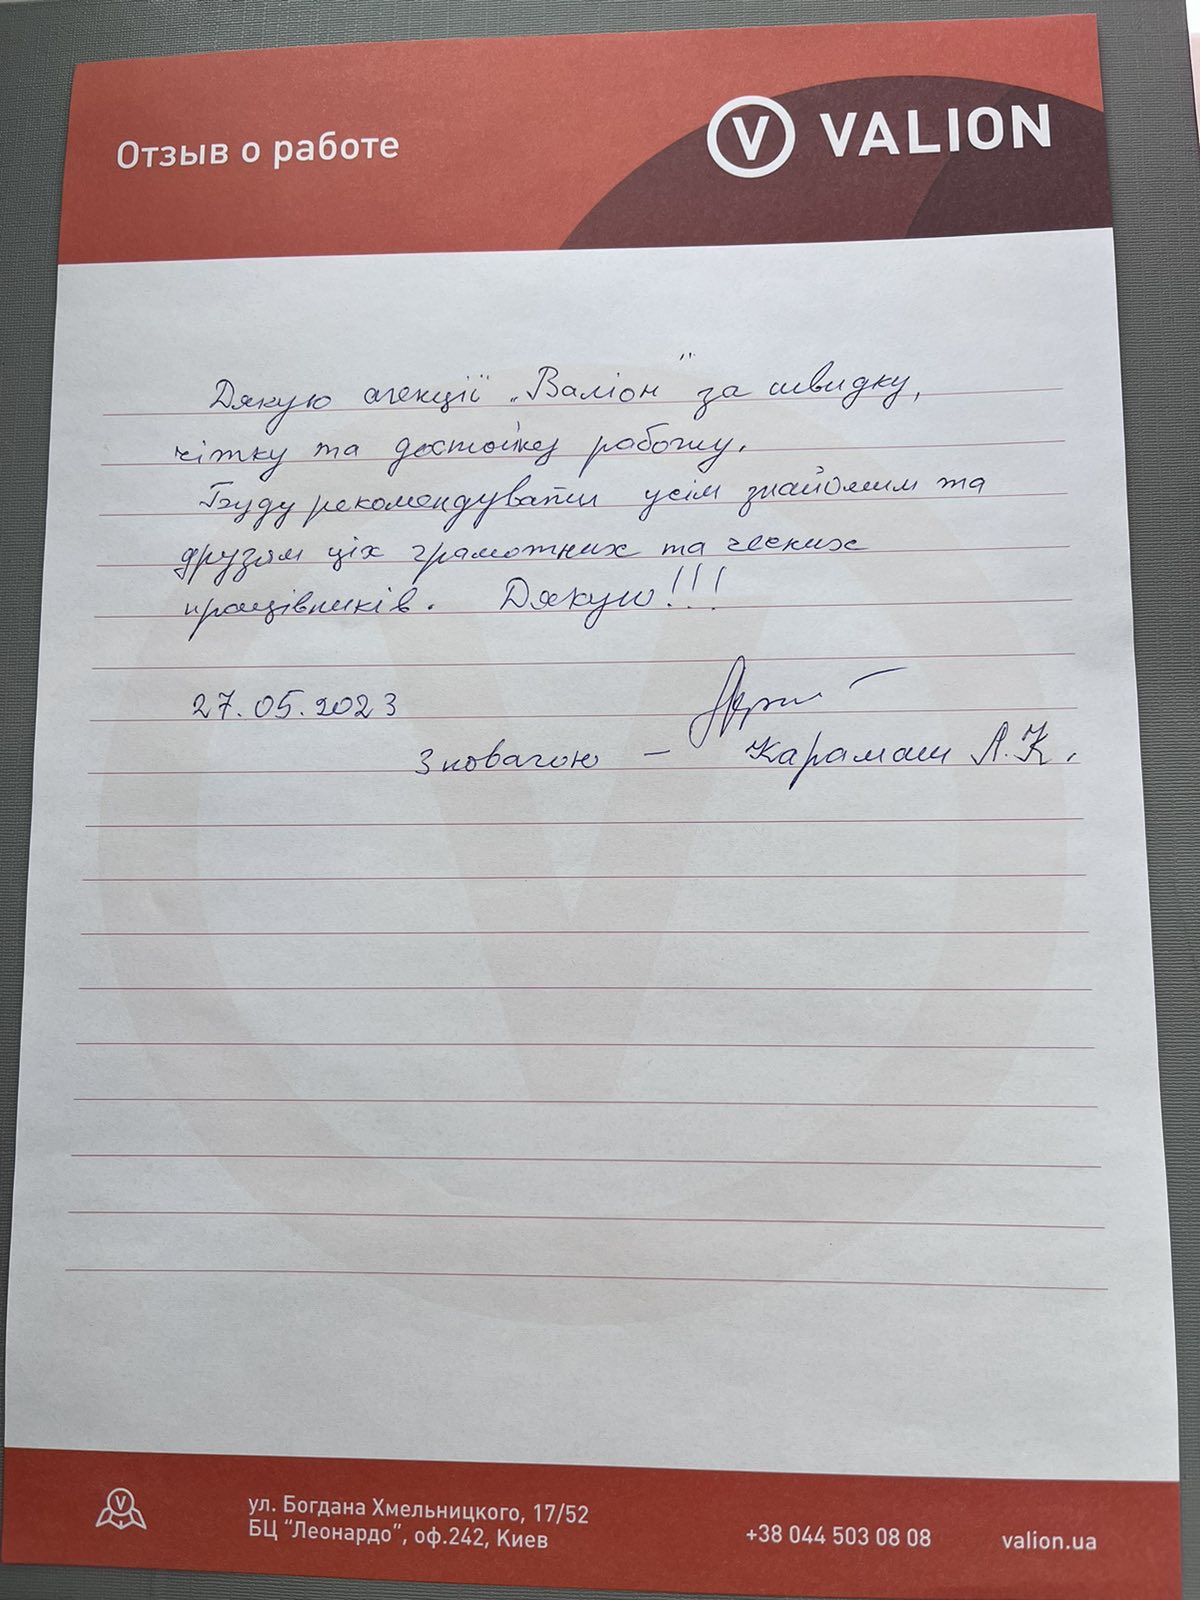 Отзыв о работе
V VALION
Дякую агенції „Валіон" за швидку,
чітку та достойну роботу.
Буду рекомендувати усім знайомим та
друзям ціх грамотних та чесних
працівників. Дякую!!!
27.05.2023
З повагою – Карамаш А.К.
ул. Богдана Хмельницкого, 17/52
БЦ "Леонардо", оф.242, Киев
+38 044 503 08 08
valion.ua